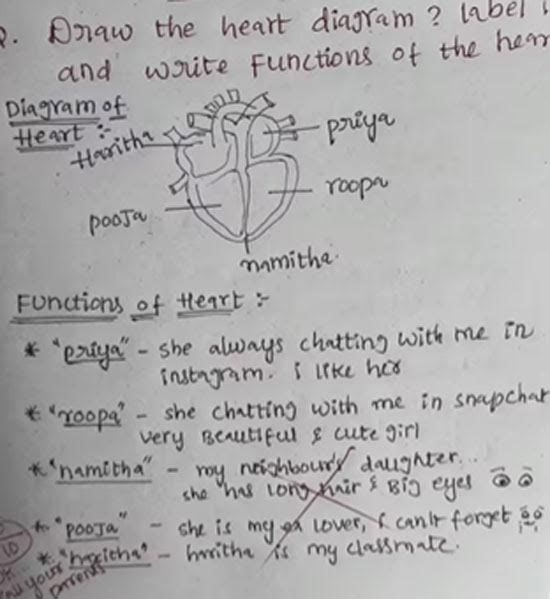 Draw the heart diagram? label
and write Functions of the hear
Diagram of
Heart :-
Haritha
priya
pooja
roopa
namitha.
Functions of Heart :-
* "priya" - she always chatting with me in
instagram. i like her
* "roopa" - she chatting with me in snapchat
very Beautiful & cute girl
* "namitha" - my neighbour's daughter...
she has long hair & Big eyes
* "pooja" - she is my ex lover, i can't forget
* "haritha" - haritha is my classmate.
10
your
parents